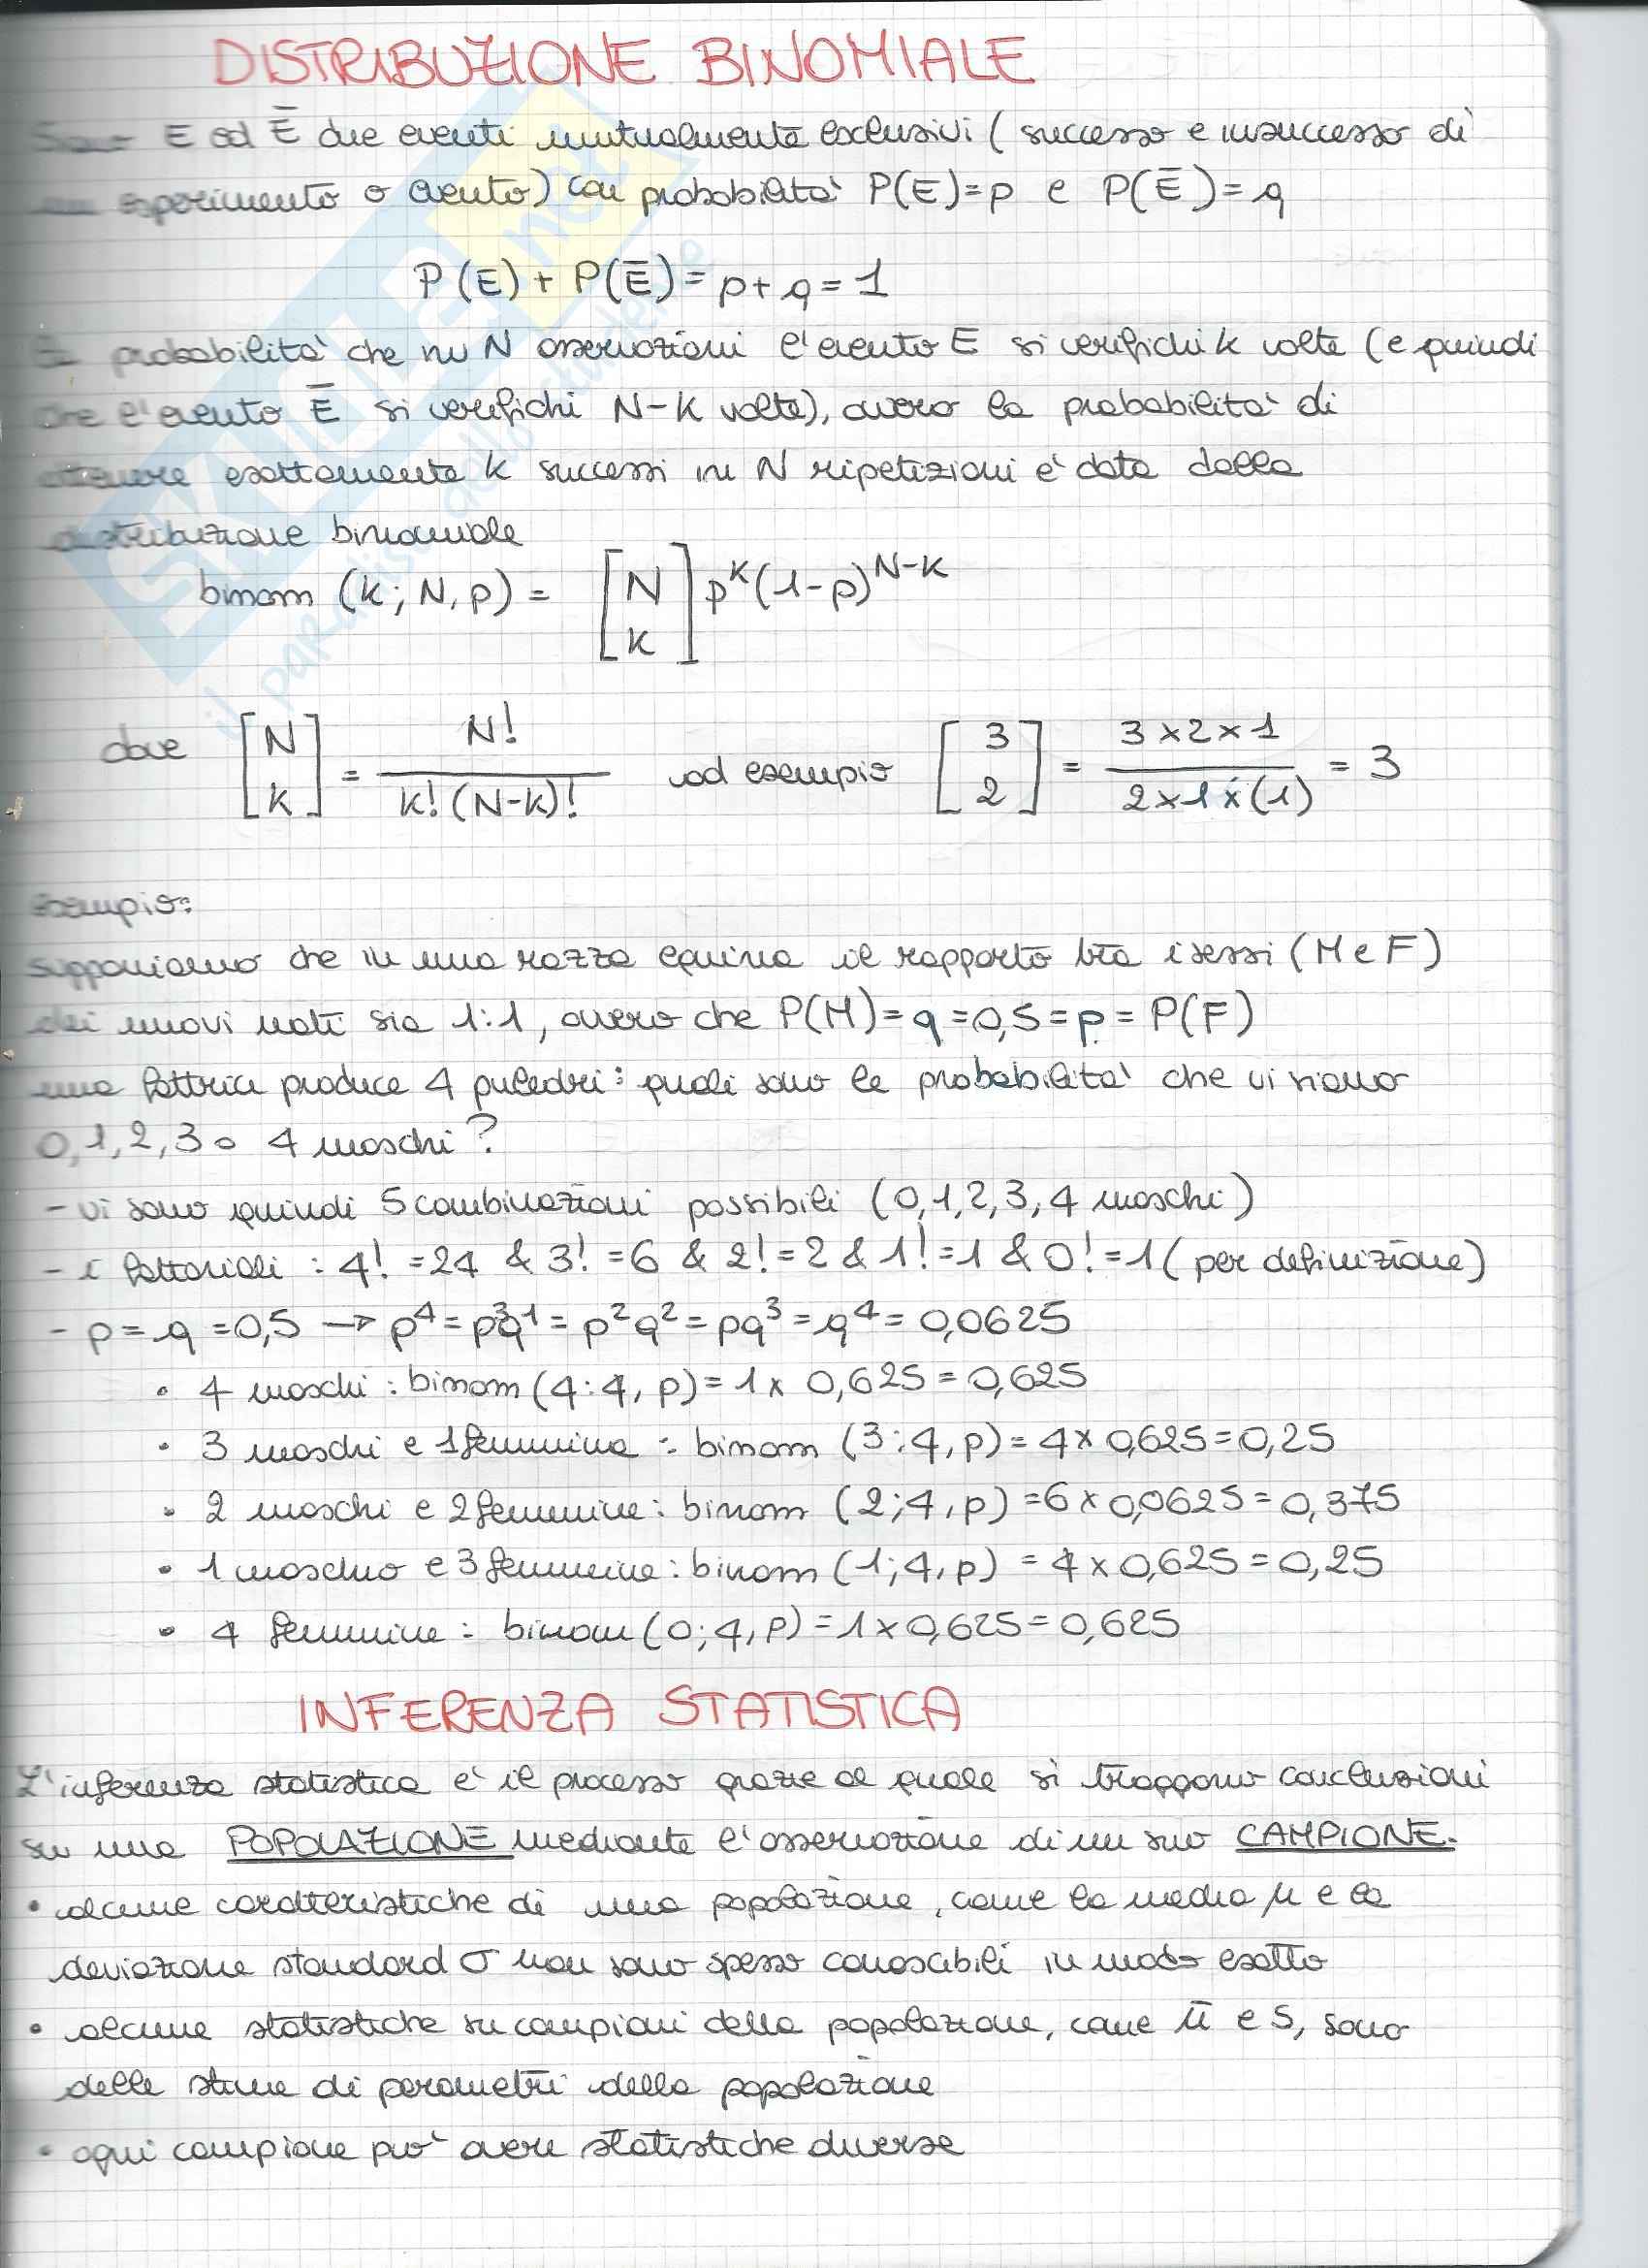 DISTRIBUZIONE BINOMIALE
Siano E ed Ē due eventi mutualmente esclusivi (successo e insuccesso di
un esperimento o evento) con probabilità P(E)=p e P(Ē)=q
P(E)+P(Ē)=p+q=1
La probabilità che nu N osservazioni l'evento E si verifichi k volte (e quindi
che l'evento Ē si verifichi N-K volte), ovvero la probabilità di
ottenere esattamente k successi in N ripetizioni è data dalla
distribuzione binomiale
binom (k; N, p) = [N k] p^k (1-p)^N-k
dove [N k] = N! / k!(N-k)! ad esempio [3 2] = 3×2×1 / 2×1×(1) = 3
esempio:
supponiamo che in una razza equina il rapporto tra i sessi (M e F)
dei nuovi nati sia 1:1, ovvero che P(M)=q=0,5=p=P(F)
una fattrice produce 4 puledri: quali sono le probabilità che vi siano
0,1,2,3 o 4 maschi?
- vi sono quindi 5 combinazioni possibili (0,1,2,3,4 maschi)
- i fattoriali : 4! =24 & 3! =6 & 2! =2 & 1! =1 & 0! =1 (per definizione)
- p=q=0,5 → p⁴=p³q¹=p²q²=pq³=q⁴=0,0625
• 4 maschi : binom (4:4, p)=1× 0,625=0,625
• 3 maschi e 1 femmina : binom (3:4,p)=4×0,625=0,25
• 2 maschi e 2 femmine : binom (2;4,p)=6×0,0625=0,375
• 1 maschio e 3 femmine : binom (1;4,p) =4×0,625=0,25
• 4 femmine : binom (0;4,p)=1×0,625=0,625
INFERENZA STATISTICA
L'inferenza statistica è il processo grazie al quale si traggono conclusioni
su una POPOLAZIONE mediante l'osservazione di un suo CAMPIONE.
• alcune caratteristiche di una popolazione, come la media μ e la
deviazione standard σ non sono spesso conoscibili in modo esatto
• alcune statistiche su campioni della popolazione, come ū e s, sono
delle stime di parametri della popolazione
• ogni campione può avere statistiche diverse